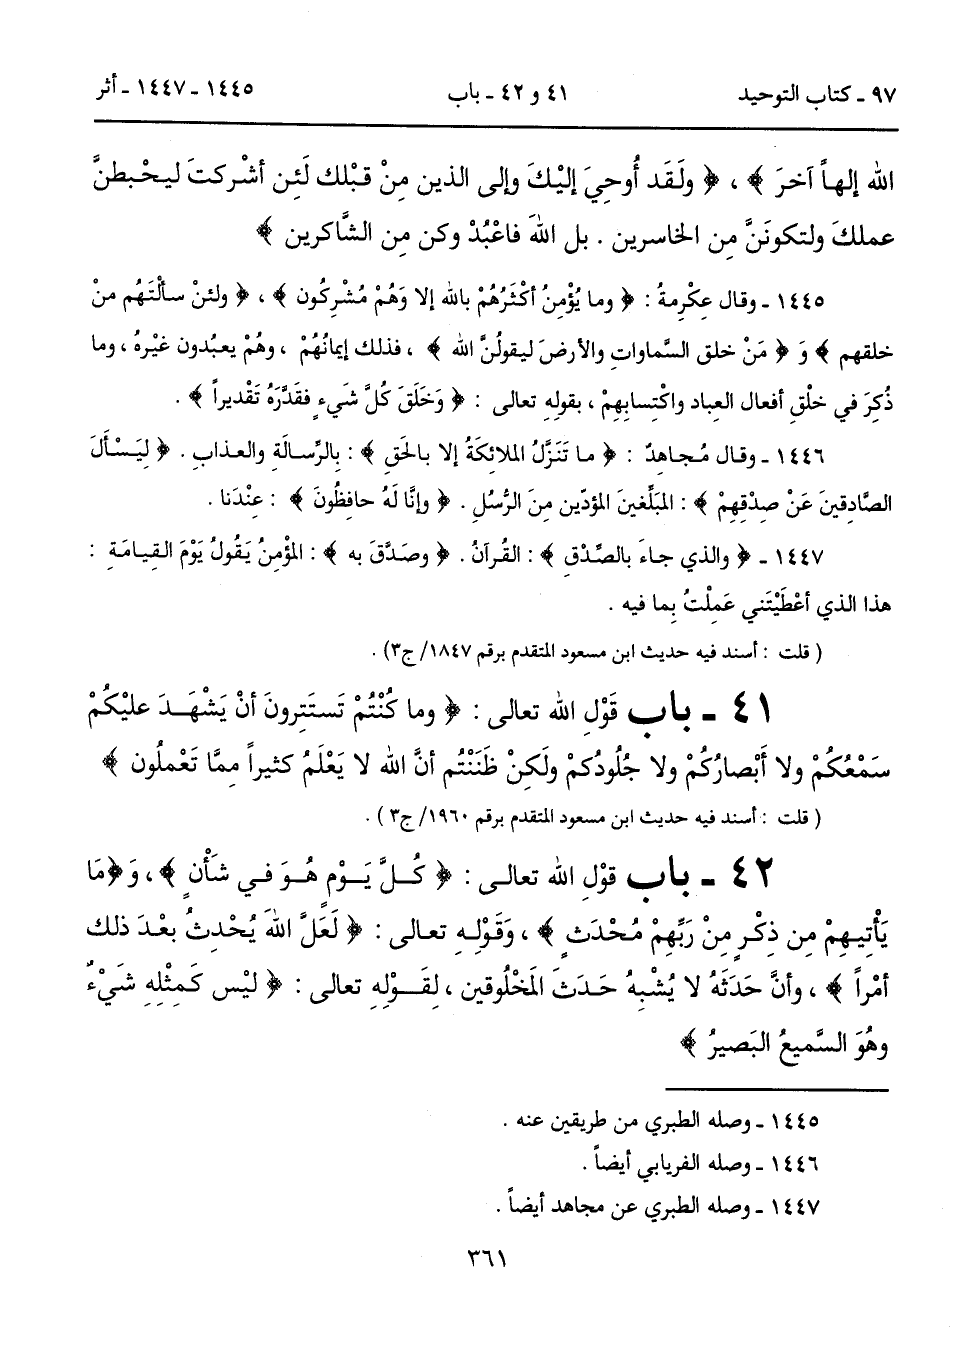 ٩٧ ـ كتاب التوحيد ٤١ و ٤٢ ـ باب ١٤٤٥ ـ ١٤٤٧ ـ أثر
الله إلهاً آخرَ ﴾ ، ﴿ ولَقَد أُوحِيَ إليْكَ وإلى الذين مِنْ قبْلك لَئِن أشْركتَ ليحْبطنَّ
عملكَ ولتكونَنَّ مِن الخاسرين . بل اللهَ فاعْبُدْ وكن مِن الشَّاكرين ﴾
١٤٤٥ ـ وقال عِكْرمةُ : ﴿ وما يُؤْمِنُ أكْثَرُهُمْ بالله إلا وَهُمْ مُشْرِكُون ﴾ ، ﴿ ولئنْ سألْتَهُم منْ
خلقهم ﴾ وَ ﴿ مَنْ خلق السَّماواتِ والأرضَ ليقولُنَّ الله ﴾ ، فذلك إيمانُهُمْ ، وهُمْ يعبُدون غيْرهُ ، وما
ذُكِرَ في خلْقِ أفعال العباد واكْتِسابِهِمْ ، بقولِهِ تعالى : ﴿ وَخَلَقَ كُلَّ شَيءٍ فقَدَّرَهُ تَقْديراً ﴾ .
١٤٤٦ ـ وقال مُجاهدٌ : ﴿ ما تَنَزَّلُ الملائكَةُ إلا بالحَقِ ﴾ : بِالرِّسالَةِ والعذابِ . ﴿ لِيَسْأَلَ
الصَّادِقينَ عَنْ صِدْقِهِمْ ﴾ : المبَلِّغينَ المؤدّين مِنَ الرُّسُلِ . ﴿ وإنَّا لَهُ حافِظُونَ ﴾ : عِنْدَنا .
١٤٤٧ ـ ﴿ والذي جاءَ بالصِّدْقِ ﴾ : القُرآنُ . ﴿ وصَدَّقَ به ﴾ : المؤْمنُ يَقُولُ يَوْمَ القِيامَةِ :
هذا الذي أعْطَيْتَني عَمِلْتُ بِما فيه .
( قلت : أسند فيه حديث ابن مسعود المتقدم برقم ١٨٤٧/ ج٣) .
٤١ ـ باب قَوْلِ الله تعالى : ﴿ وما كُنْتُمْ تَستَتِرونَ أنْ يَشْهَدَ عليْكُمْ
سَمْعُكُمْ ولا أَبْصارُكُمْ ولا جُلُودُكمْ ولَكِنْ ظَنَنْتُم أنَّ الله لا يَعْلَمُ كثيراً مِمَّا تَعْملُون ﴾
( قلت : أسند فيه حديث ابن مسعود المتقدم برقم ١٩٦٠/ ج٣ ) .
٤٢ ـ باب قوْلِ الله تعالى : ﴿ كُلَّ يَوْمٍ هُوَ في شَأْنٍ ﴾ ، وَ﴿مَا
يَأْتِيهِمْ مِن ذِكْرٍ مِنْ رَبِّهِمْ مُحْدَثٍ ﴾ ، وَقَوْلِهِ تعالى : ﴿ لَعَلَّ اللهَ يُحْدثُ بعْدَ ذلك
أمْراً ﴾ ، وأنَّ حَدَثَهُ لا يُشْبِهُ حَدَثَ المَخْلُوقين ، لقَوْلِهِ تعالى : ﴿ ليْس كَمِثْلِهِ شَيْءٌ
وهُوَ السَّميعُ البَصيرُ ﴾
١٤٤٥ ـ وصله الطبري من طريقين عنه .
١٤٤٦ ـ وصله الفريابي أيضاً .
١٤٤٧ ـ وصله الطبري عن مجاهد أيضاً .
٣٦١